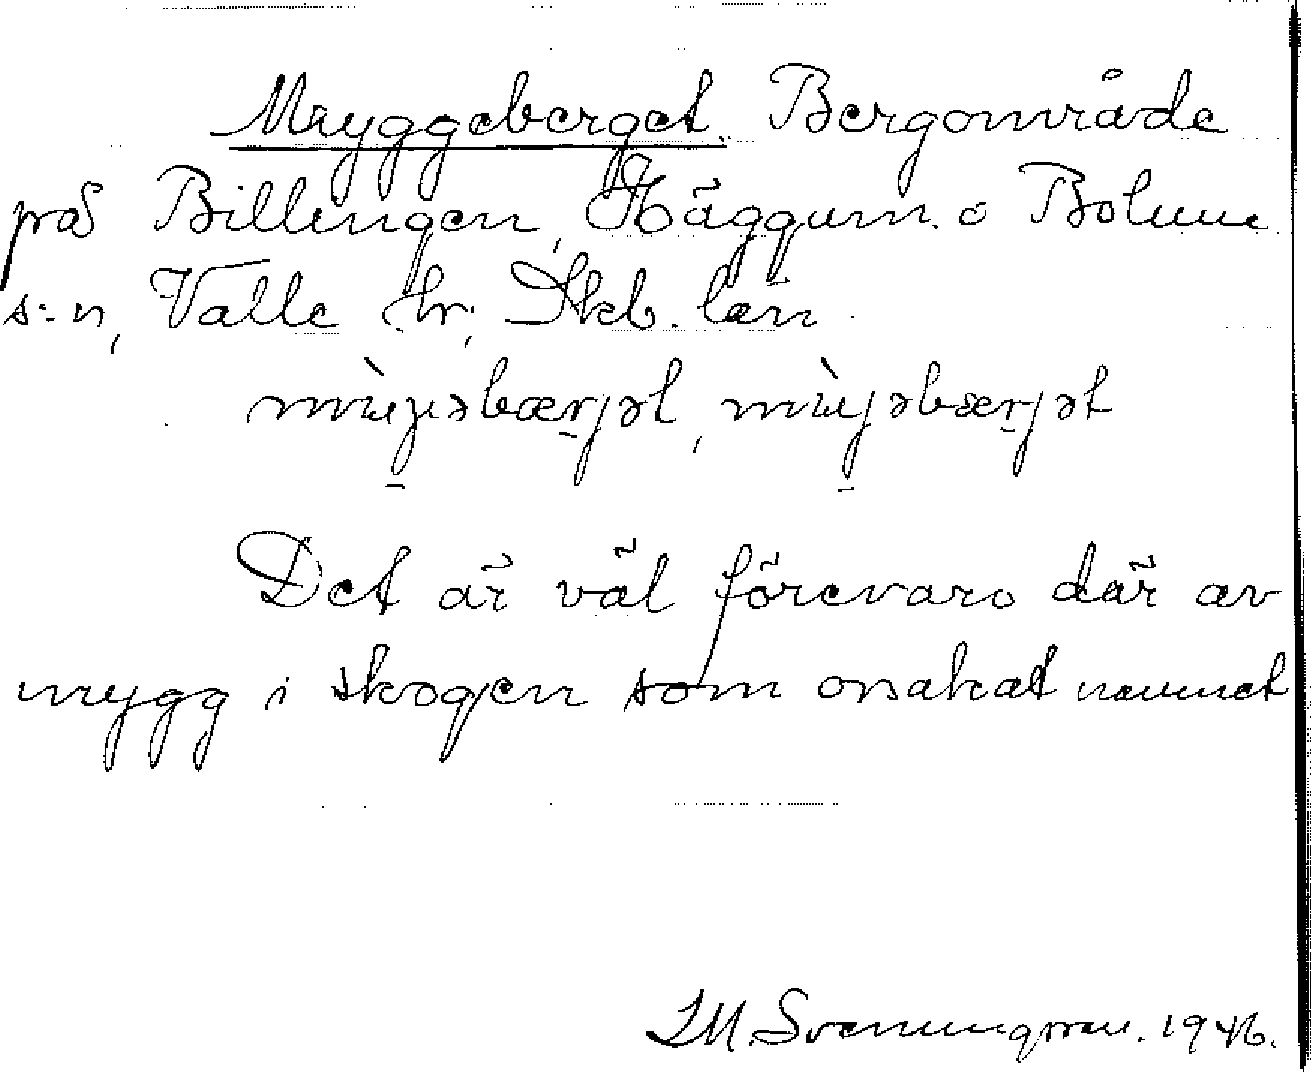 Myggeberget. Bergområde
på Billingen, Häggum o Bolum
s:n, Valle hr, Skb. län
Det är väl förevaro där av
mygg i skogen som orsakat namnet
I.M. Svenungsson. 1946.